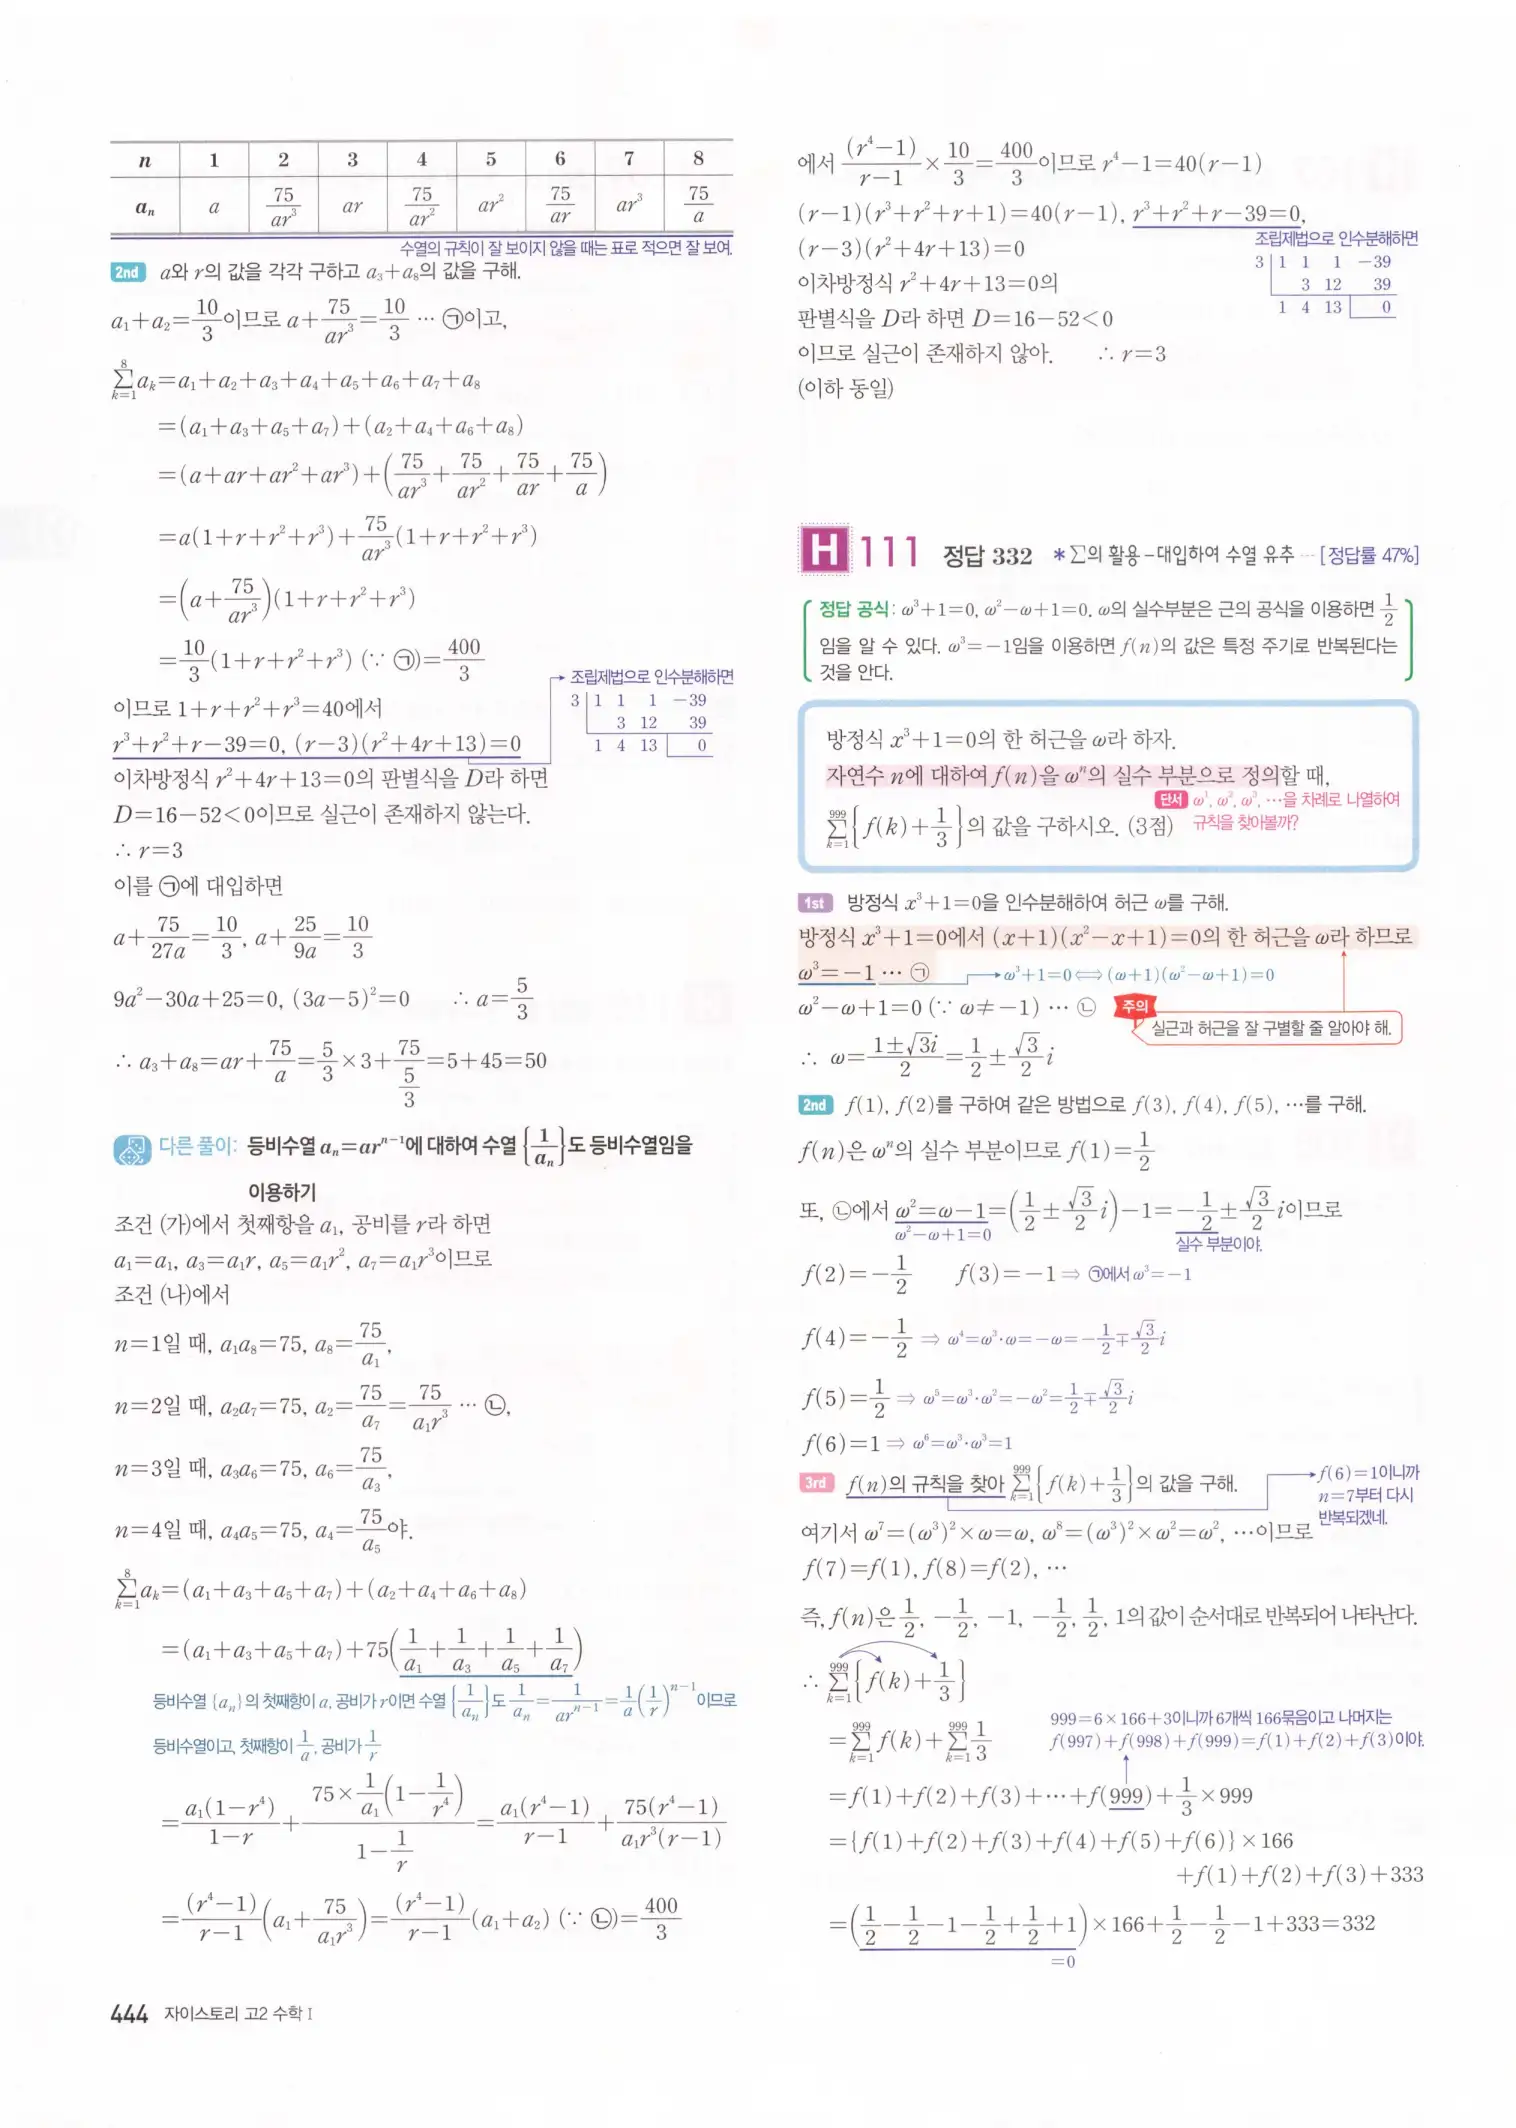 n 1 2 3 4 5 6 7 8
aₙ a 75/ar³ ar 75/ar² ar² 75/ar ar³ 75/a
수열의 규칙이 잘 보이지 않을 때는 표로 적으면 잘 보여.
2nd a와 r의 값을 각각 구하고 a₃+a₈의 값을 구해.
a₁+a₂=10/3이므로 a+75/ar³=10/3 … ㉠이고,
∑(k=1→8) aₖ=a₁+a₂+a₃+a₄+a₅+a₆+a₇+a₈
=(a₁+a₃+a₅+a₇)+(a₂+a₄+a₆+a₈)
=(a+ar+ar²+ar³)+(75/ar³+75/ar²+75/ar+75/a)
=a(1+r+r²+r³)+75/ar³(1+r+r²+r³)
=(a+75/ar³)(1+r+r²+r³)
=10/3(1+r+r²+r³) (∵ ㉠)=400/3
이므로 1+r+r²+r³=40에서
r³+r²+r-39=0, (r-3)(r²+4r+13)=0
조립제법으로 인수분해하면
3 1 1 1 -39
3 12 39
1 4 13 0
이차방정식 r²+4r+13=0의 판별식을 D라 하면
D=16-52<0이므로 실근이 존재하지 않는다.
∴ r=3
이를 ㉠에 대입하면
a+75/27a=10/3, a+25/9a=10/3
9a²-30a+25=0, (3a-5)²=0 ∴ a=5/3
∴ a₃+a₈=ar+75/a=5/3×3+75/(5/3)=5+45=50
다른 풀이: 등비수열 aₙ=arⁿ⁻¹에 대하여 수열 {1/aₙ}도 등비수열임을
이용하기
조건 (가)에서 첫째항을 a₁, 공비를 r라 하면
a₁=a₁, a₃=a₁r, a₅=a₁r², a₇=a₁r³이므로
조건 (나)에서
n=1일 때, a₁a₈=75, a₈=75/a₁,
n=2일 때, a₂a₇=75, a₂=75/a₇=75/a₁r³ … ㉡,
n=3일 때, a₃a₆=75, a₆=75/a₃,
n=4일 때, a₄a₅=75, a₄=75/a₅야.
∑(k=1→8) aₖ=(a₁+a₃+a₅+a₇)+(a₂+a₄+a₆+a₈)
=(a₁+a₃+a₅+a₇)+75(1/a₁+1/a₃+1/a₅+1/a₇)
등비수열 {aₙ}의 첫째항이 a, 공비가 r이면 수열 {1/aₙ}도 1/aₙ=1/arⁿ⁻¹=1/a(1/r)ⁿ⁻¹이므로
등비수열이고, 첫째항이 1/a, 공비가 1/r
=a₁(1-r⁴)/(1-r)+{75×1/a₁(1-1/r⁴)}/(1-1/r)=a₁(r⁴-1)/(r-1)+75(r⁴-1)/a₁r³(r-1)
=(r⁴-1)/(r-1)(a₁+75/a₁r³)=(r⁴-1)/(r-1)(a₁+a₂) (∵ ㉡)=400/3
444 자이스토리 고2 수학 I
에서 (r⁴-1)/(r-1)×10/3=400/3이므로 r⁴-1=40(r-1)
(r-1)(r³+r²+r+1)=40(r-1), r³+r²+r-39=0,
(r-3)(r²+4r+13)=0
조립제법으로 인수분해하면
3 1 1 1 -39
3 12 39
1 4 13 0
이차방정식 r²+4r+13=0의
판별식을 D라 하면 D=16-52<0
이므로 실근이 존재하지 않아. ∴ r=3
(이하 동일)
H 111 정답 332 *∑의 활용-대입하여 수열 유추 … [정답률 47%]
정답 공식: ω³+1=0, ω²-ω+1=0. ω의 실수부분은 근의 공식을 이용하면 1/2
임을 알 수 있다. ω³=-1임을 이용하면 f(n)의 값은 특정 주기로 반복된다는
것을 안다.
방정식 x³+1=0의 한 허근을 ω라 하자.
자연수 n에 대하여 f(n)을 ωⁿ의 실수 부분으로 정의할 때,
단서 ω¹, ω², ω³, …을 차례로 나열하여
규칙을 찾아볼까?
∑(k=1→999) {f(k)+1/3}의 값을 구하시오. (3점)
1st 방정식 x³+1=0을 인수분해하여 허근 ω를 구해.
방정식 x³+1=0에서 (x+1)(x²-x+1)=0의 한 허근을 ω라 하므로
ω³=-1 … ㉠ → ω³+1=0 ⟺ (ω+1)(ω²-ω+1)=0
ω²-ω+1=0 (∵ ω≠-1) … ㉡
주의 실근과 허근을 잘 구별할 줄 알아야 해.
∴ ω=(1±√3i)/2=1/2±√3/2 i
2nd f(1), f(2)를 구하여 같은 방법으로 f(3), f(4), f(5), …를 구해.
f(n)은 ωⁿ의 실수 부분이므로 f(1)=1/2
또, ㉡에서 ω²=ω-1=(1/2±√3/2 i)-1=-1/2±√3/2 i이므로
ω²-ω+1=0 실수 부분이야.
f(2)=-1/2 f(3)=-1 ⇒ ㉠에서 ω³=-1
f(4)=-1/2 ⇒ ω⁴=ω³·ω=-ω=-1/2∓√3/2 i
f(5)=1/2 ⇒ ω⁵=ω³·ω²=-ω²=1/2∓√3/2 i
f(6)=1 ⇒ ω⁶=ω³·ω³=1
3rd f(n)의 규칙을 찾아 ∑(k=1→999) {f(k)+1/3}의 값을 구해.
→ f(6)=1이니까
n=7부터 다시
반복되겠네.
여기서 ω⁷=(ω³)²×ω=ω, ω⁸=(ω³)²×ω²=ω², …이므로
f(7)=f(1), f(8)=f(2), …
즉, f(n)은 1/2, -1/2, -1, -1/2, 1/2, 1의 값이 순서대로 반복되어 나타난다.
∴ ∑(k=1→999) {f(k)+1/3}
=∑(k=1→999) f(k)+∑(k=1→999) 1/3
999=6×166+3이니까 6개씩 166묶음이고 나머지는
f(997)+f(998)+f(999)=f(1)+f(2)+f(3)이야.
=f(1)+f(2)+f(3)+⋯+f(999)+1/3×999
={f(1)+f(2)+f(3)+f(4)+f(5)+f(6)}×166
+f(1)+f(2)+f(3)+333
=(1/2-1/2-1-1/2+1/2+1)×166+1/2-1/2-1+333=332
=0